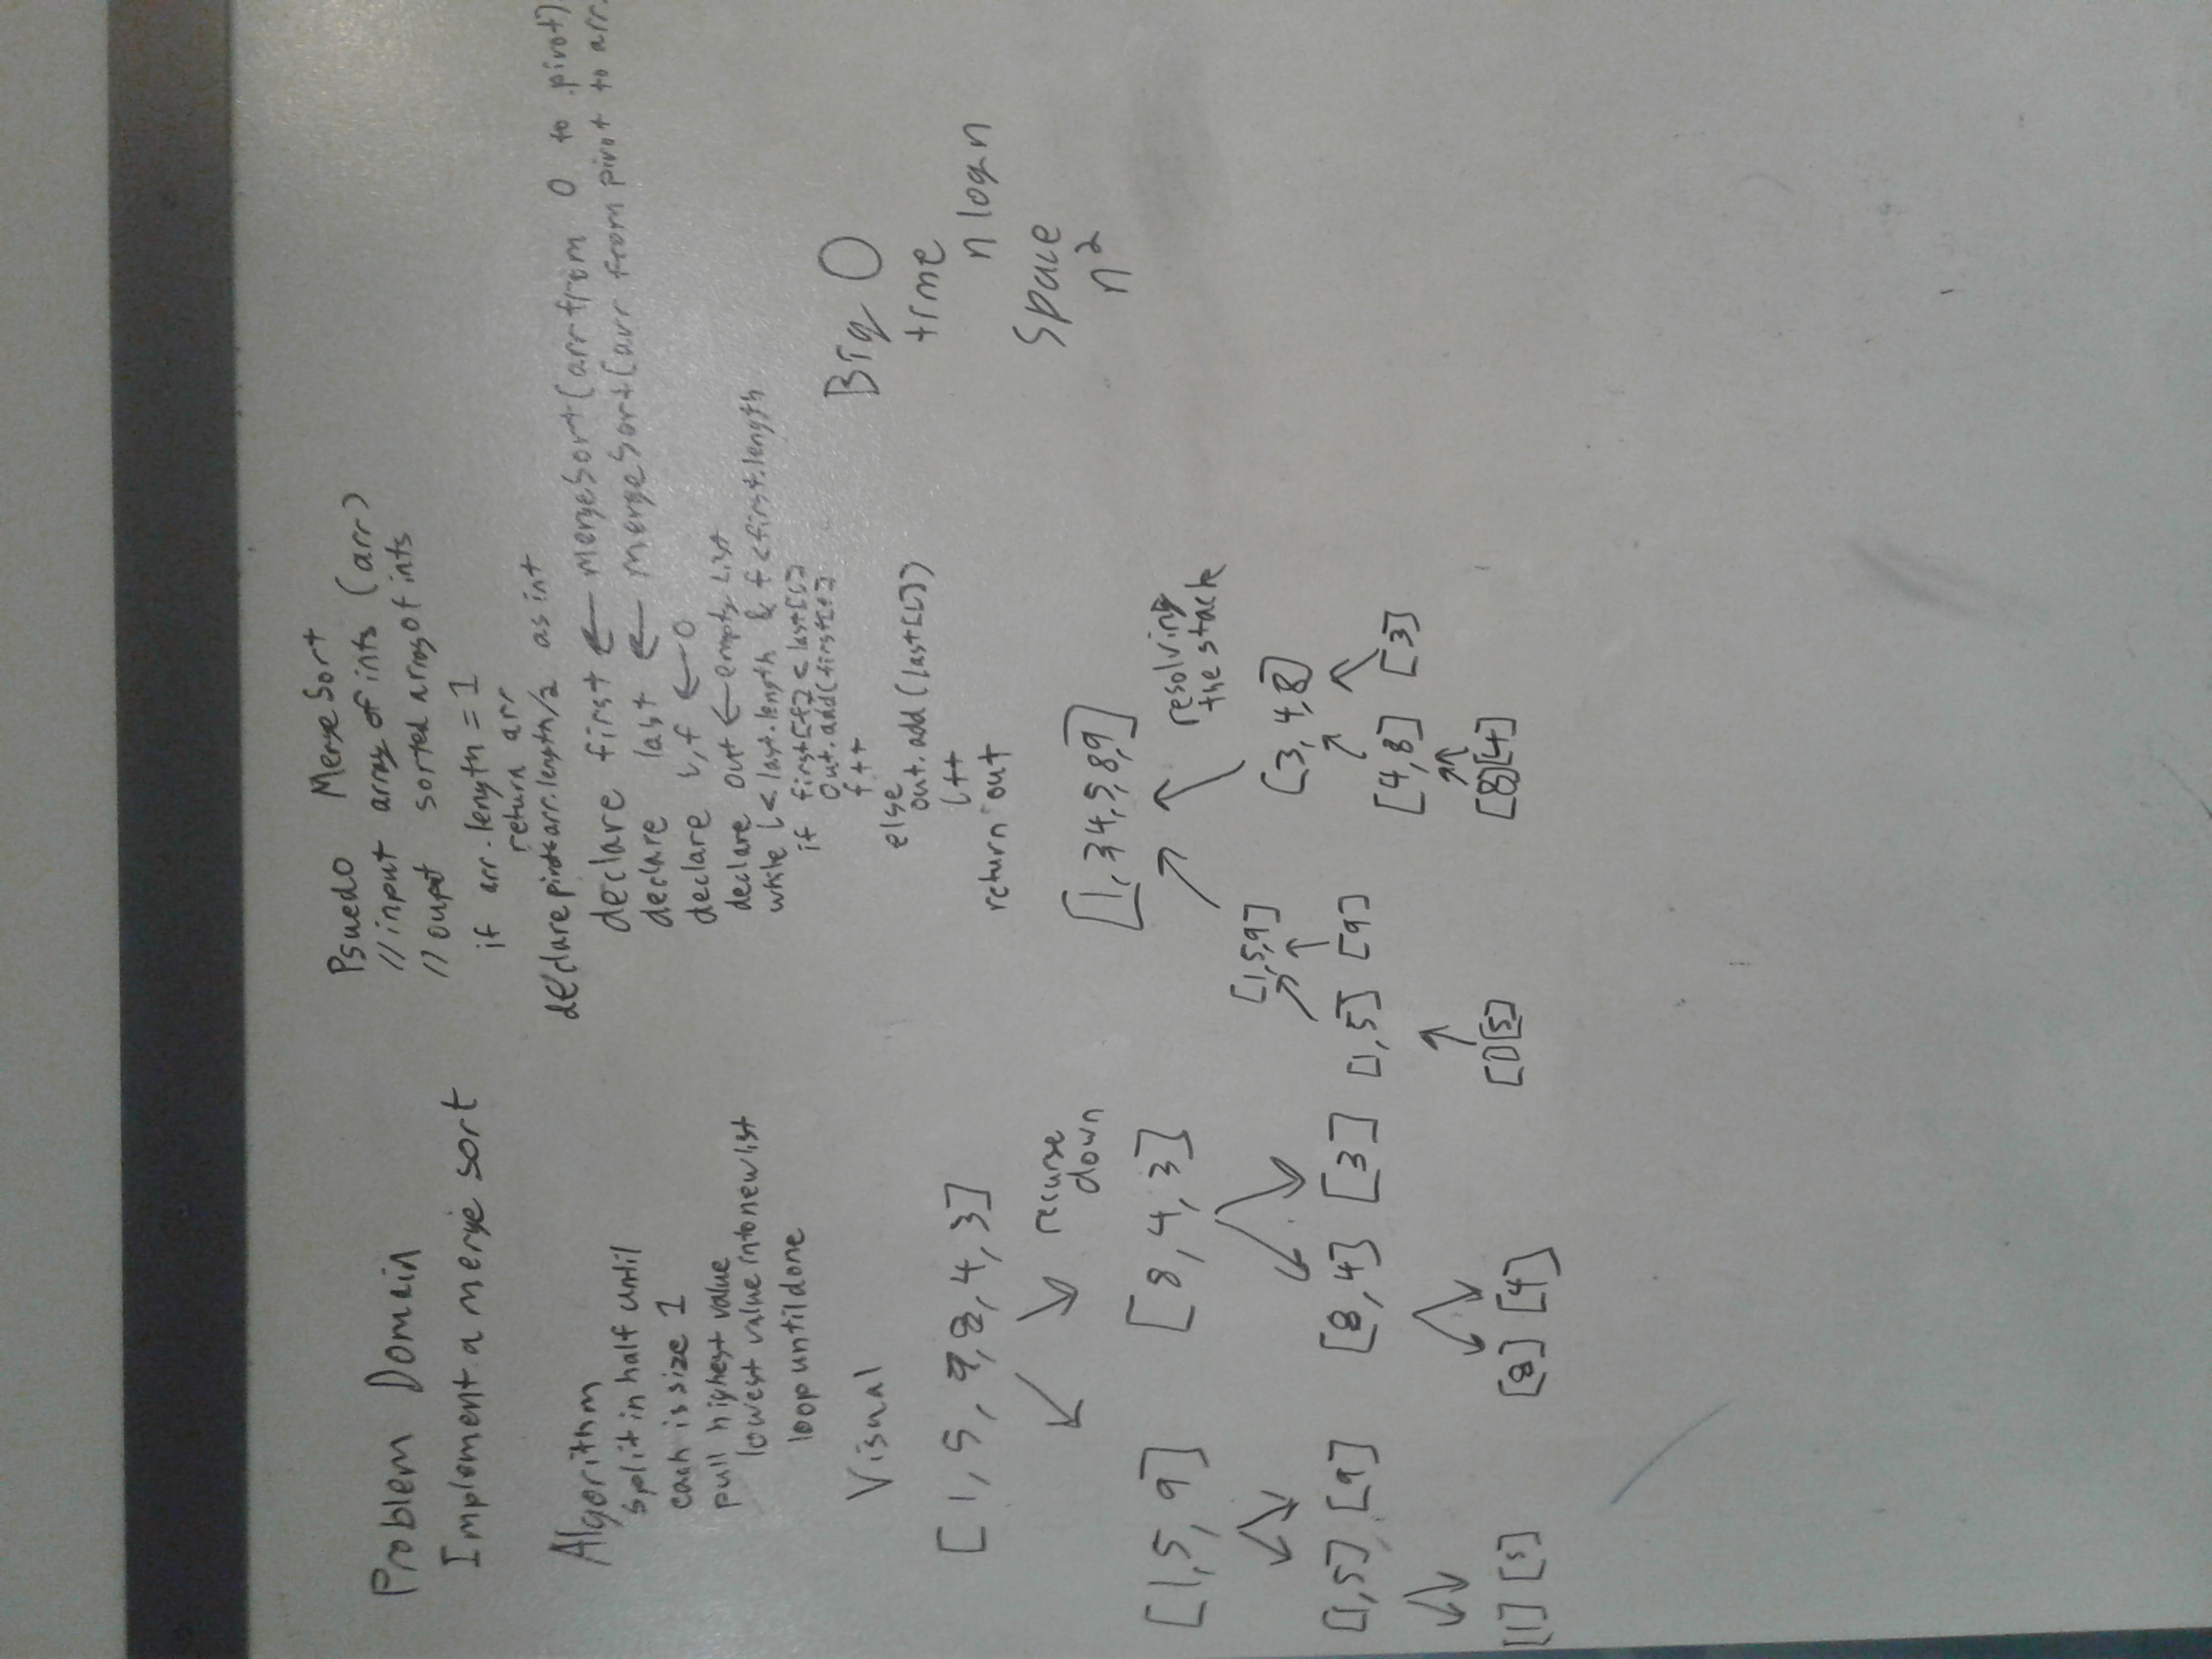 Problem Domain
Implement a merge sort
Algorithm
split in half until
each is size 1
pull highest value
lowest value into new list
loop until done
Visual
[1, 5, 9, 8, 4, 3]
recurse
down
[1, 5, 9] [8, 4, 3]
[1,5] [9] [8,4] [3]
[1] [5] [8] [4]
Psuedo MergeSort
//input array of ints (arr)
//ouput sorted array of ints
if arr.length = 1
return arr
declare pivot ← arr.length/2 as int
declare first ← mergeSort(arr from 0 to pivot)
declare last ← mergeSort(arr from pivot to arr.
declare l, f ← 0
declare out ← empty list
while l < last.length & f < first.length
if first[f] < last[l]
out.add(first[f]
f++
else
out.add(last[l])
l++
return out
[1, 3 4, 5, 8, 9]
resolving
the stack
[1,5,9] [3, 4, 8]
[1,5] [9] [4,8] [3]
[1][5] [8][4]
Big O
time
n log n
Space
n²